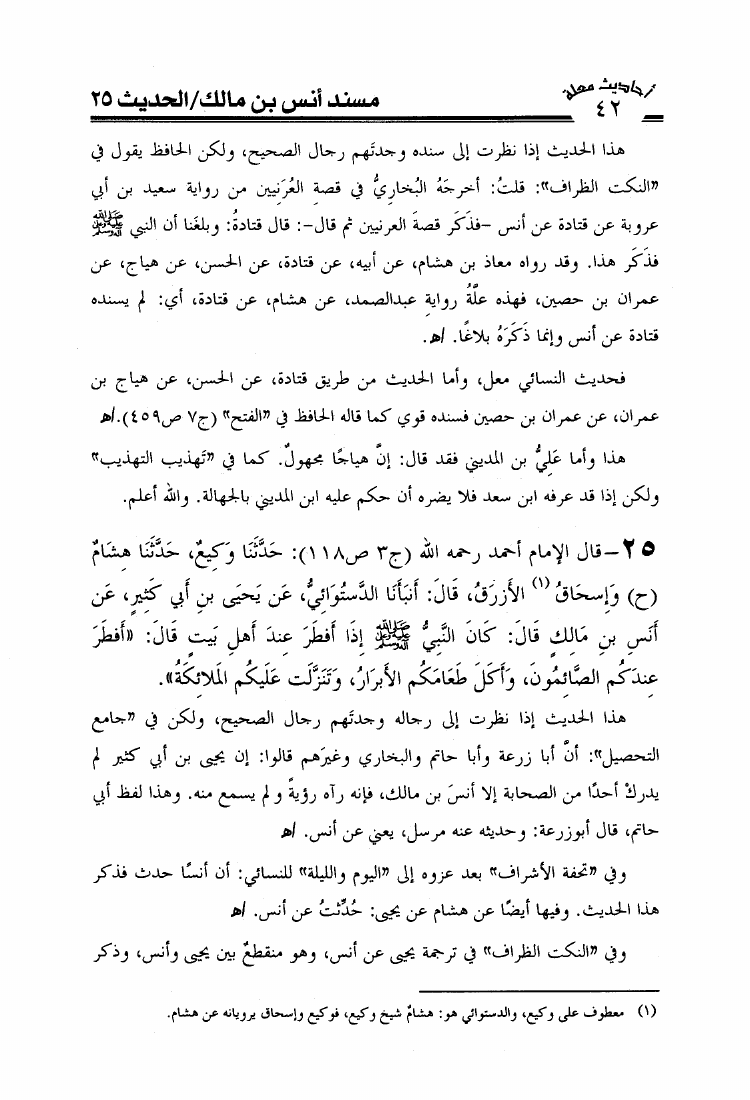 أحاديث معلة
مسند أنس بن مالك/الحديث ٢٥
٤٢
هذا الحديث إذا نظرت إلى سنده وجدتَهم رجال الصحيح، ولكن الحافظ يقول في
«النكت الظراف»: قلتُ: أخرجَهُ البُخاريُّ في قصةِ العُرَنيين من رواية سعيد بن أبي
عروبة عن قتادة عن أنس -فذَكَر قصةَ العرنيين ثم قال-: قال قتادةُ: وبلغَنا أن النبي ﷺ
فذَكَر هذا. وقد رواه معاذ بن هشام، عن أبيه، عن قتادة، عن الحسن، عن هياج، عن
عمران بن حصين، فهذه علّةُ روايةِ عبدالصمد، عن هشام، عن قتادة، أي: لم يسنده
قتادة عن أنس وإنما ذَكَرَهُ بلاغًا. اﻫ.
فحديث النسائي معل، وأما الحديث من طريق قتادة، عن الحسن، عن هياج بن
عمران، عن عمران بن حصين فسنده قوي كما قاله الحافظ في «الفتح» (ج٧ ص٤٥٩).اﻫ
هذا وأما عَلِيُّ بن المديني فقد قال: إنَّ هياجًا مجهولٌ. كما في «تَهذيب التهذيب»
ولكن إذا قد عرفه ابن سعد فلا يضره أن حكم عليه ابن المديني بالجهالة. والله أعلم.
٢٥-قال الإمام أحمد رحمه الله (ج٣ ص١١٨): حَدَّثَنَا وَكِيعٌ، حَدَّثَنَا هِشَامٌ
(ح) وَإِسحَاقُ (١) الأَزرَقُ، قَالَ: أَنبَأَنَا الدَّستُوَائِيُّ، عَن يَحيَى بنِ أَبي كَثيرٍ، عَن
أَنَسِ بنِ مَالِكٍ قَالَ: كَانَ النَّبِيُّ ﷺ إِذَا أَفطَرَ عِندَ أَهلِ بَيتٍ قَالَ: «أَفطَرَ
عِندَكُم الصَّائِمُونَ، وَأَكَلَ طَعَامَكُم الأَبرَارُ، وَتَنَزَّلَت عَلَيكُم المَلائِكَةُ».
هذا الحديث إذا نظرت إلى رجاله وجدتَهم رجال الصحيح، ولكن في «جامع
التحصيل»: أنَّ أبا زرعة وأبا حاتم والبخاري وغيرَهم قالوا: إن يحيى بن أبي كثير لم
يدركْ أحدًا من الصحابة إلا أنسَ بن مالك، فإنه رآه رؤيةً ولم يسمع منه. وهذا لفظ أبي
حاتم، قال أبوزرعة: وحديثه عنه مرسل، يعني عن أنس. اﻫ
وفي «تحفة الأشراف» بعد عزوه إلى «اليوم والليلة» للنسائي: أن أنسًا حدث فذكر
هذا الحديث. وفيها أيضًا عن هشام عن يحيى: حُدِّثتُ عن أنس. اﻫ
وفي «النكت الظراف» في ترجمة يحيى عن أنس، وهو منقطعٌ بين يحيى وأنس، وذكر
(١) معطوف على وكيع، والدستوائي هو: هشامٌ شيخ وكيع، فوكيع وإسحاق يرويانه عن هشام.